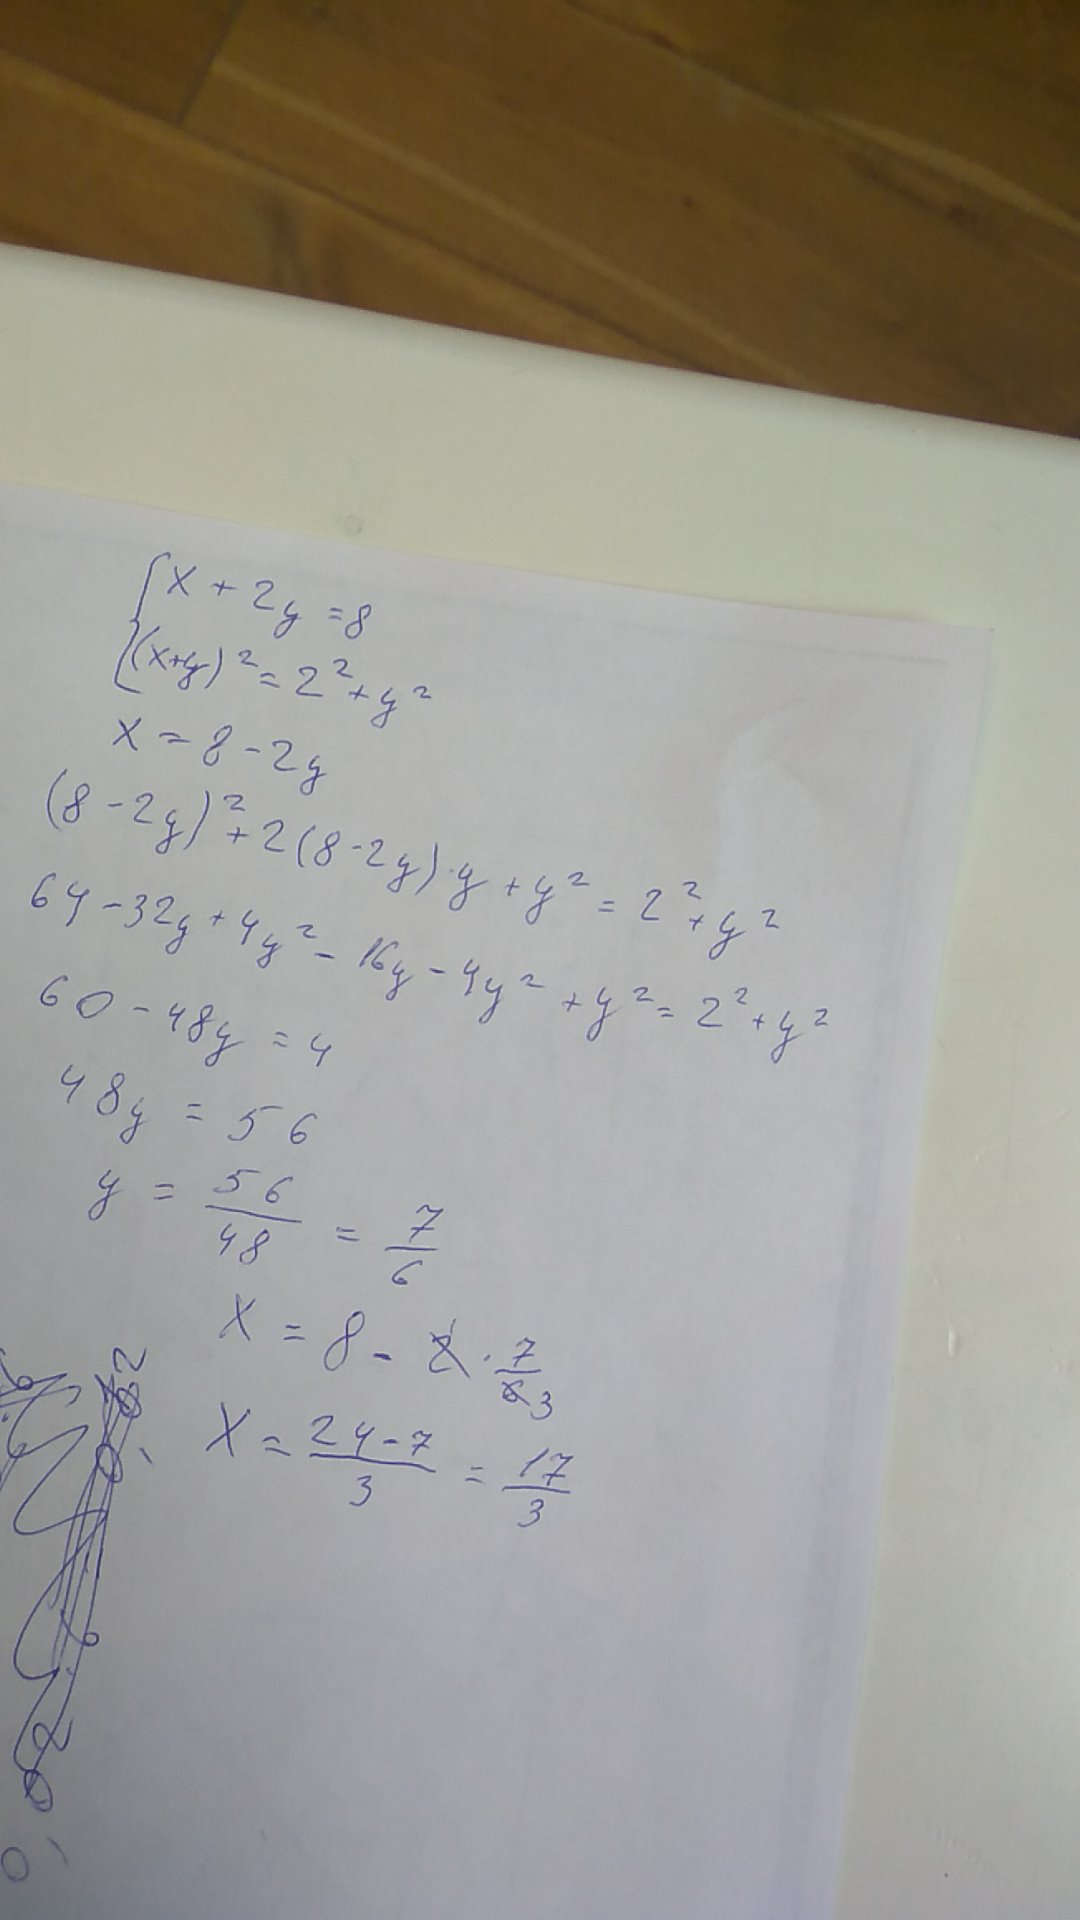 {x + 2y = 8
{(x+y)² = 2² + y²
x = 8 - 2y
(8 - 2y)² + 2(8 - 2y)·y + y² = 2² + y²
64 - 32y + 4y² - 16y - 4y² + y² = 2² + y²
60 - 48y = 4
48y = 56
y = 56/48 = 7/6
x = 8 - 2 · 7/6 3
x = 24-7/3 = 17/3